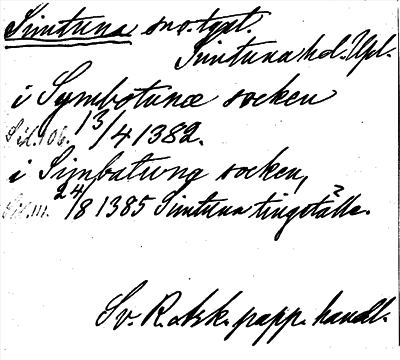 Simtuna sns. tgst.
Simtuna hd. Upl.
i Symbotunæ socken
Sid. 106. 13/4 1382.
i Simbatuna socken,
Sid. 111. 24/8 1385 Simtuna tingställe.
Sv. R. Ark. papp. handl.